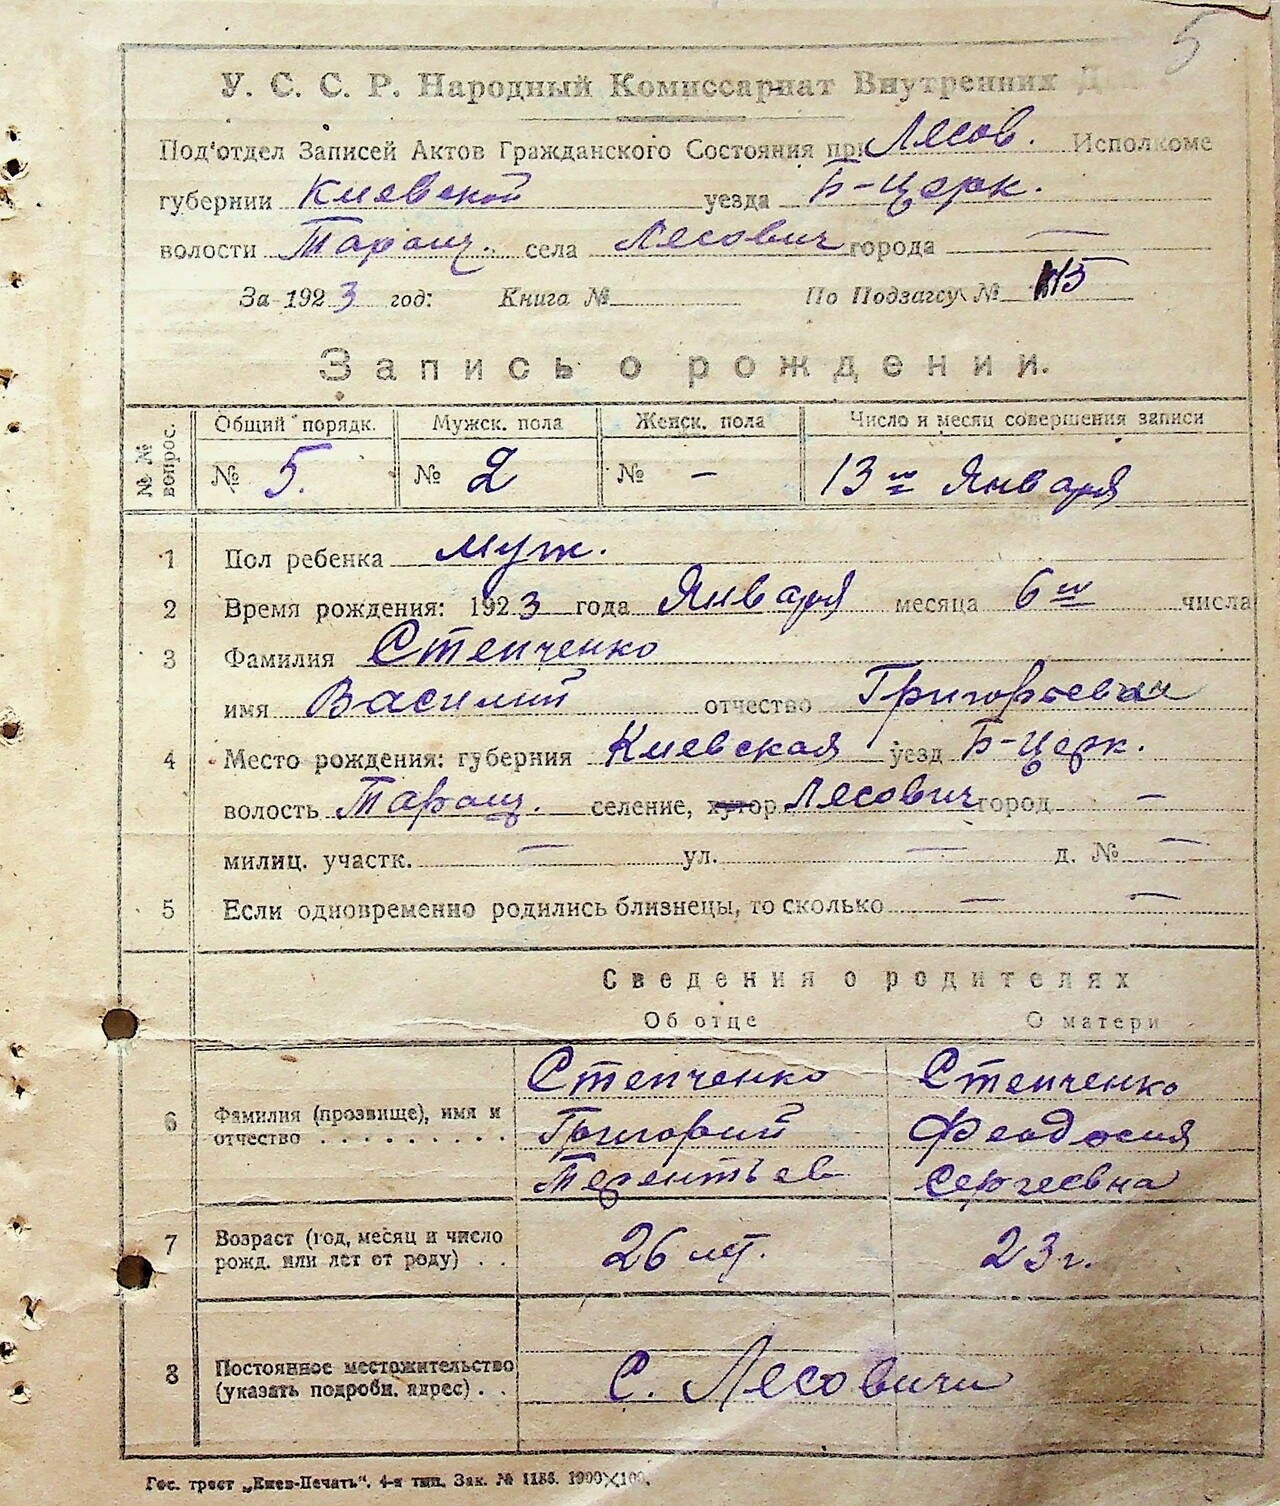 5
У. С. С. Р. Народный Комиссариат Внутренних Д
Под'отдел Записей Актов Гражданского Состояния при Лесов. Исполкоме
губернии Киевской уезда Б-Церк.
волости Таращ. села Лесович города —
За 1923 год: Книга № По Подзагсу № 5
Запись о рождении.
№ № вопрос. Общий порядк. Мужск. пола Женск. пола Число и месяц совершения записи
№ 5. № 2 № - 13го Января
1 Пол ребенка муж.
2 Время рождения: 1923 года Января месяца 6го числа
3 Фамилия Степченко
имя Василий отчество Григорьевич
4 Место рождения: губерния Киевская уезд Б-Церк.
волость Таращ. селение, хутор Лесович город —
милиц. участк. — ул. — д. № —
5 Если одновременно родились близнецы, то сколько — —
Сведения о родителях
Об отце О матери
Степченко Степченко
6 Фамилия (прозвище), имя и Григорий Феодосия
отчество . . . . . . . . . Терентьев Сергеевна
7 Возраст (год, месяц и число
рожд. или лет от роду) . . 26 лет. 23 г.
8 Постоянное местожительство
(указать подробн. адрес) . . С. Лесовичи
Гос. трест „Киев-Печать“. 4-я тип. Зак. № 1186. 1000×100.